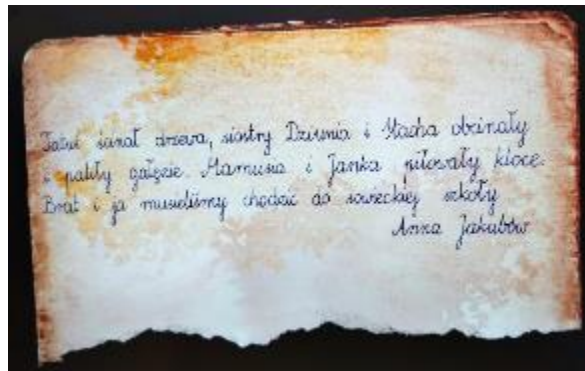 Tatuś ścinał drzewa, siostry Dziunia i Stacha obcinały
i paliły gałęzie. Mamusia i Janka piłowały kloce.
Brat i ja musieliśmy chodzić do sowieckiej szkoły
Anna Jakubów